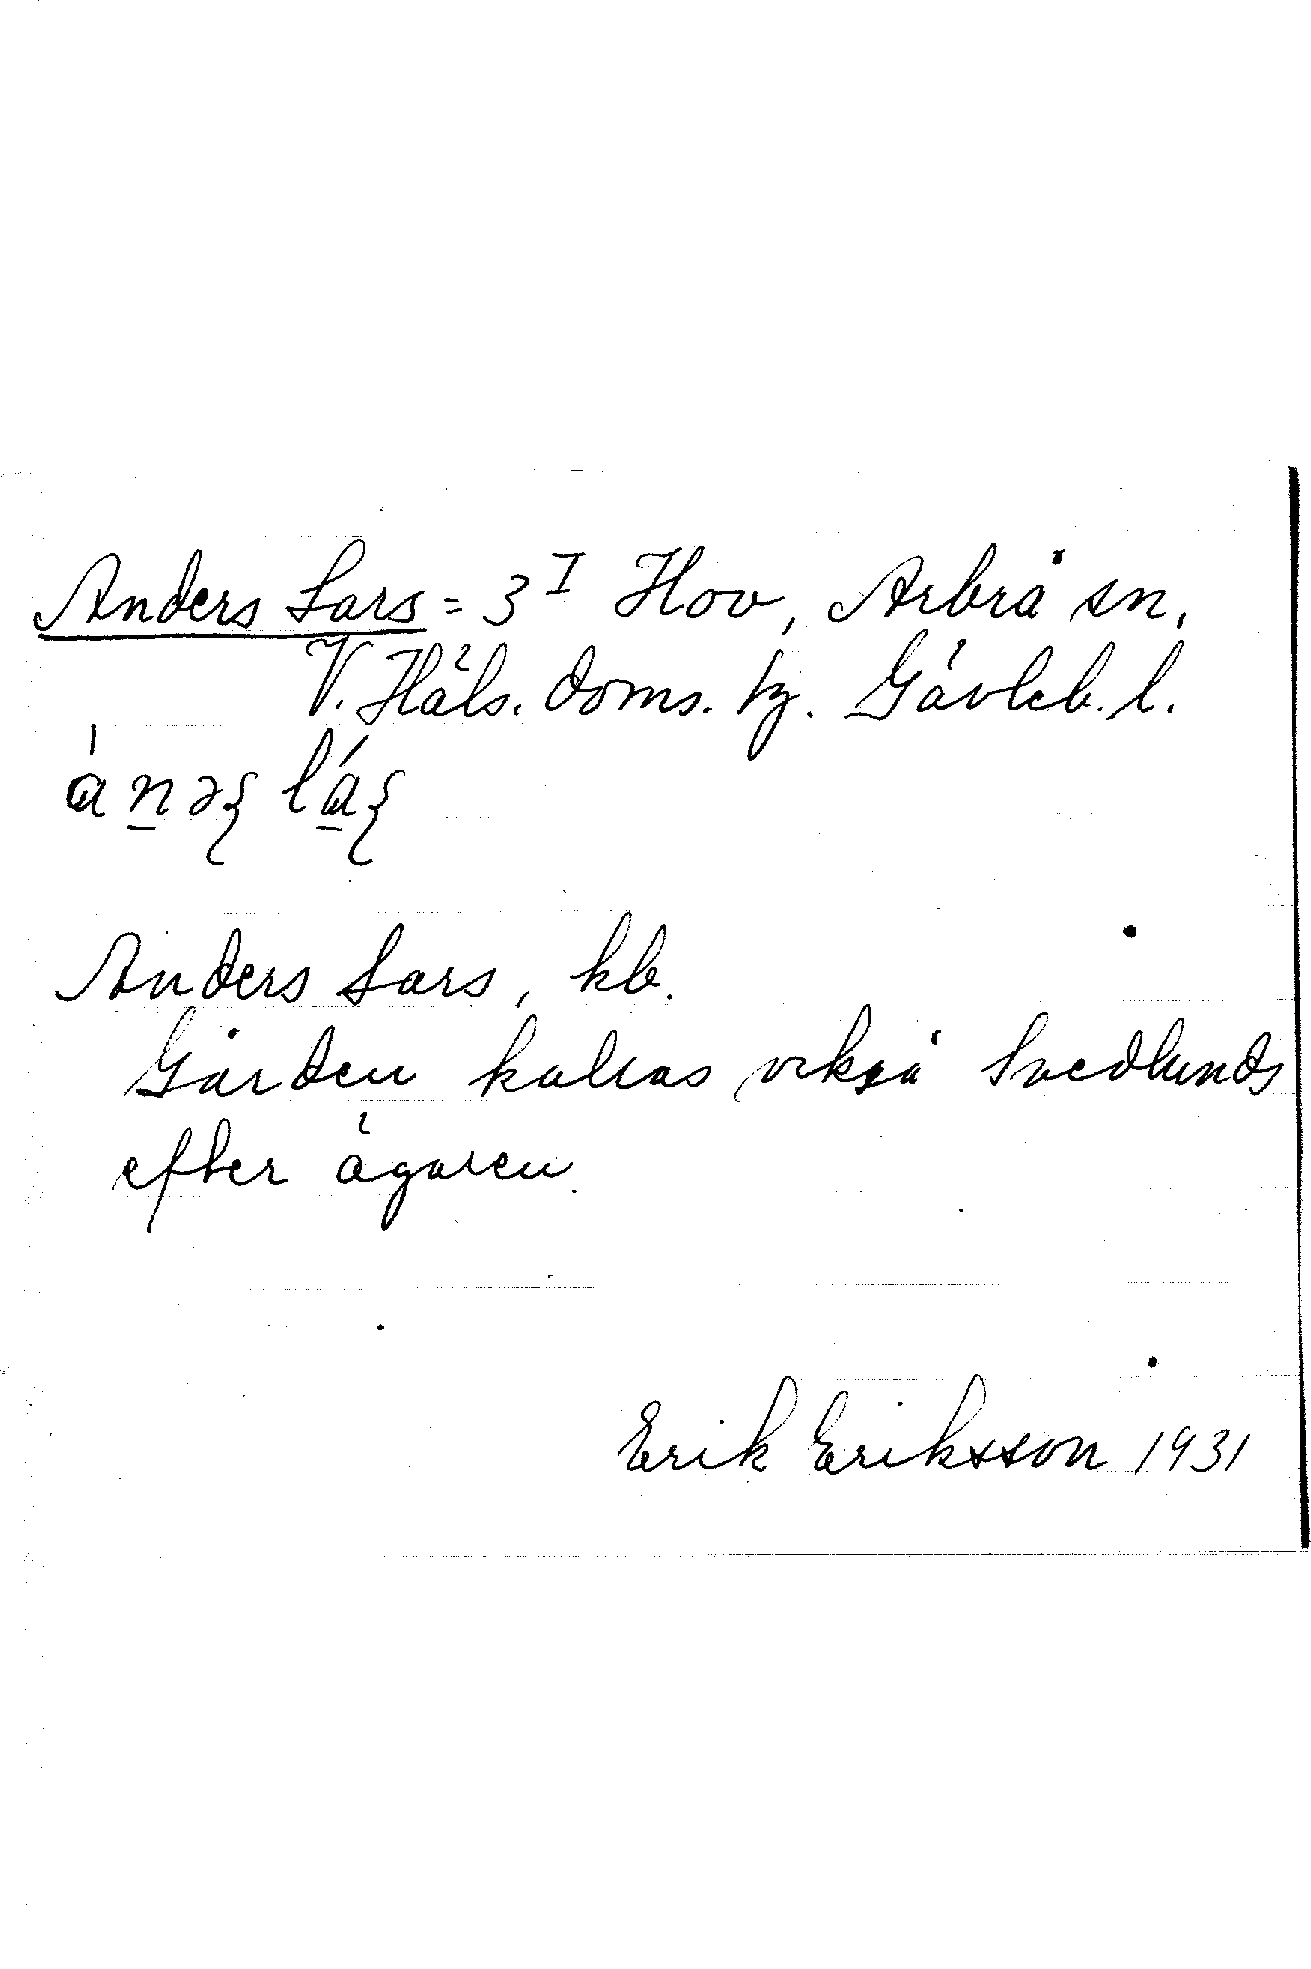 Anders Lars = 3<sup>I</sup> Hov, Arbrå sn,
V. Häls. doms. tg. Gävleb. l.
Anders Lars, kb.
Gården kallas också Svedlunds
efter ägaren.
Erik Eriksson 1931